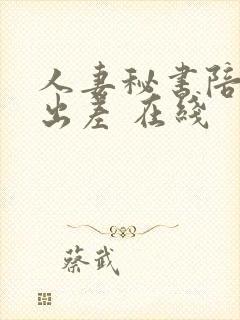 人妻秘书陪
出差 在线
蔡武